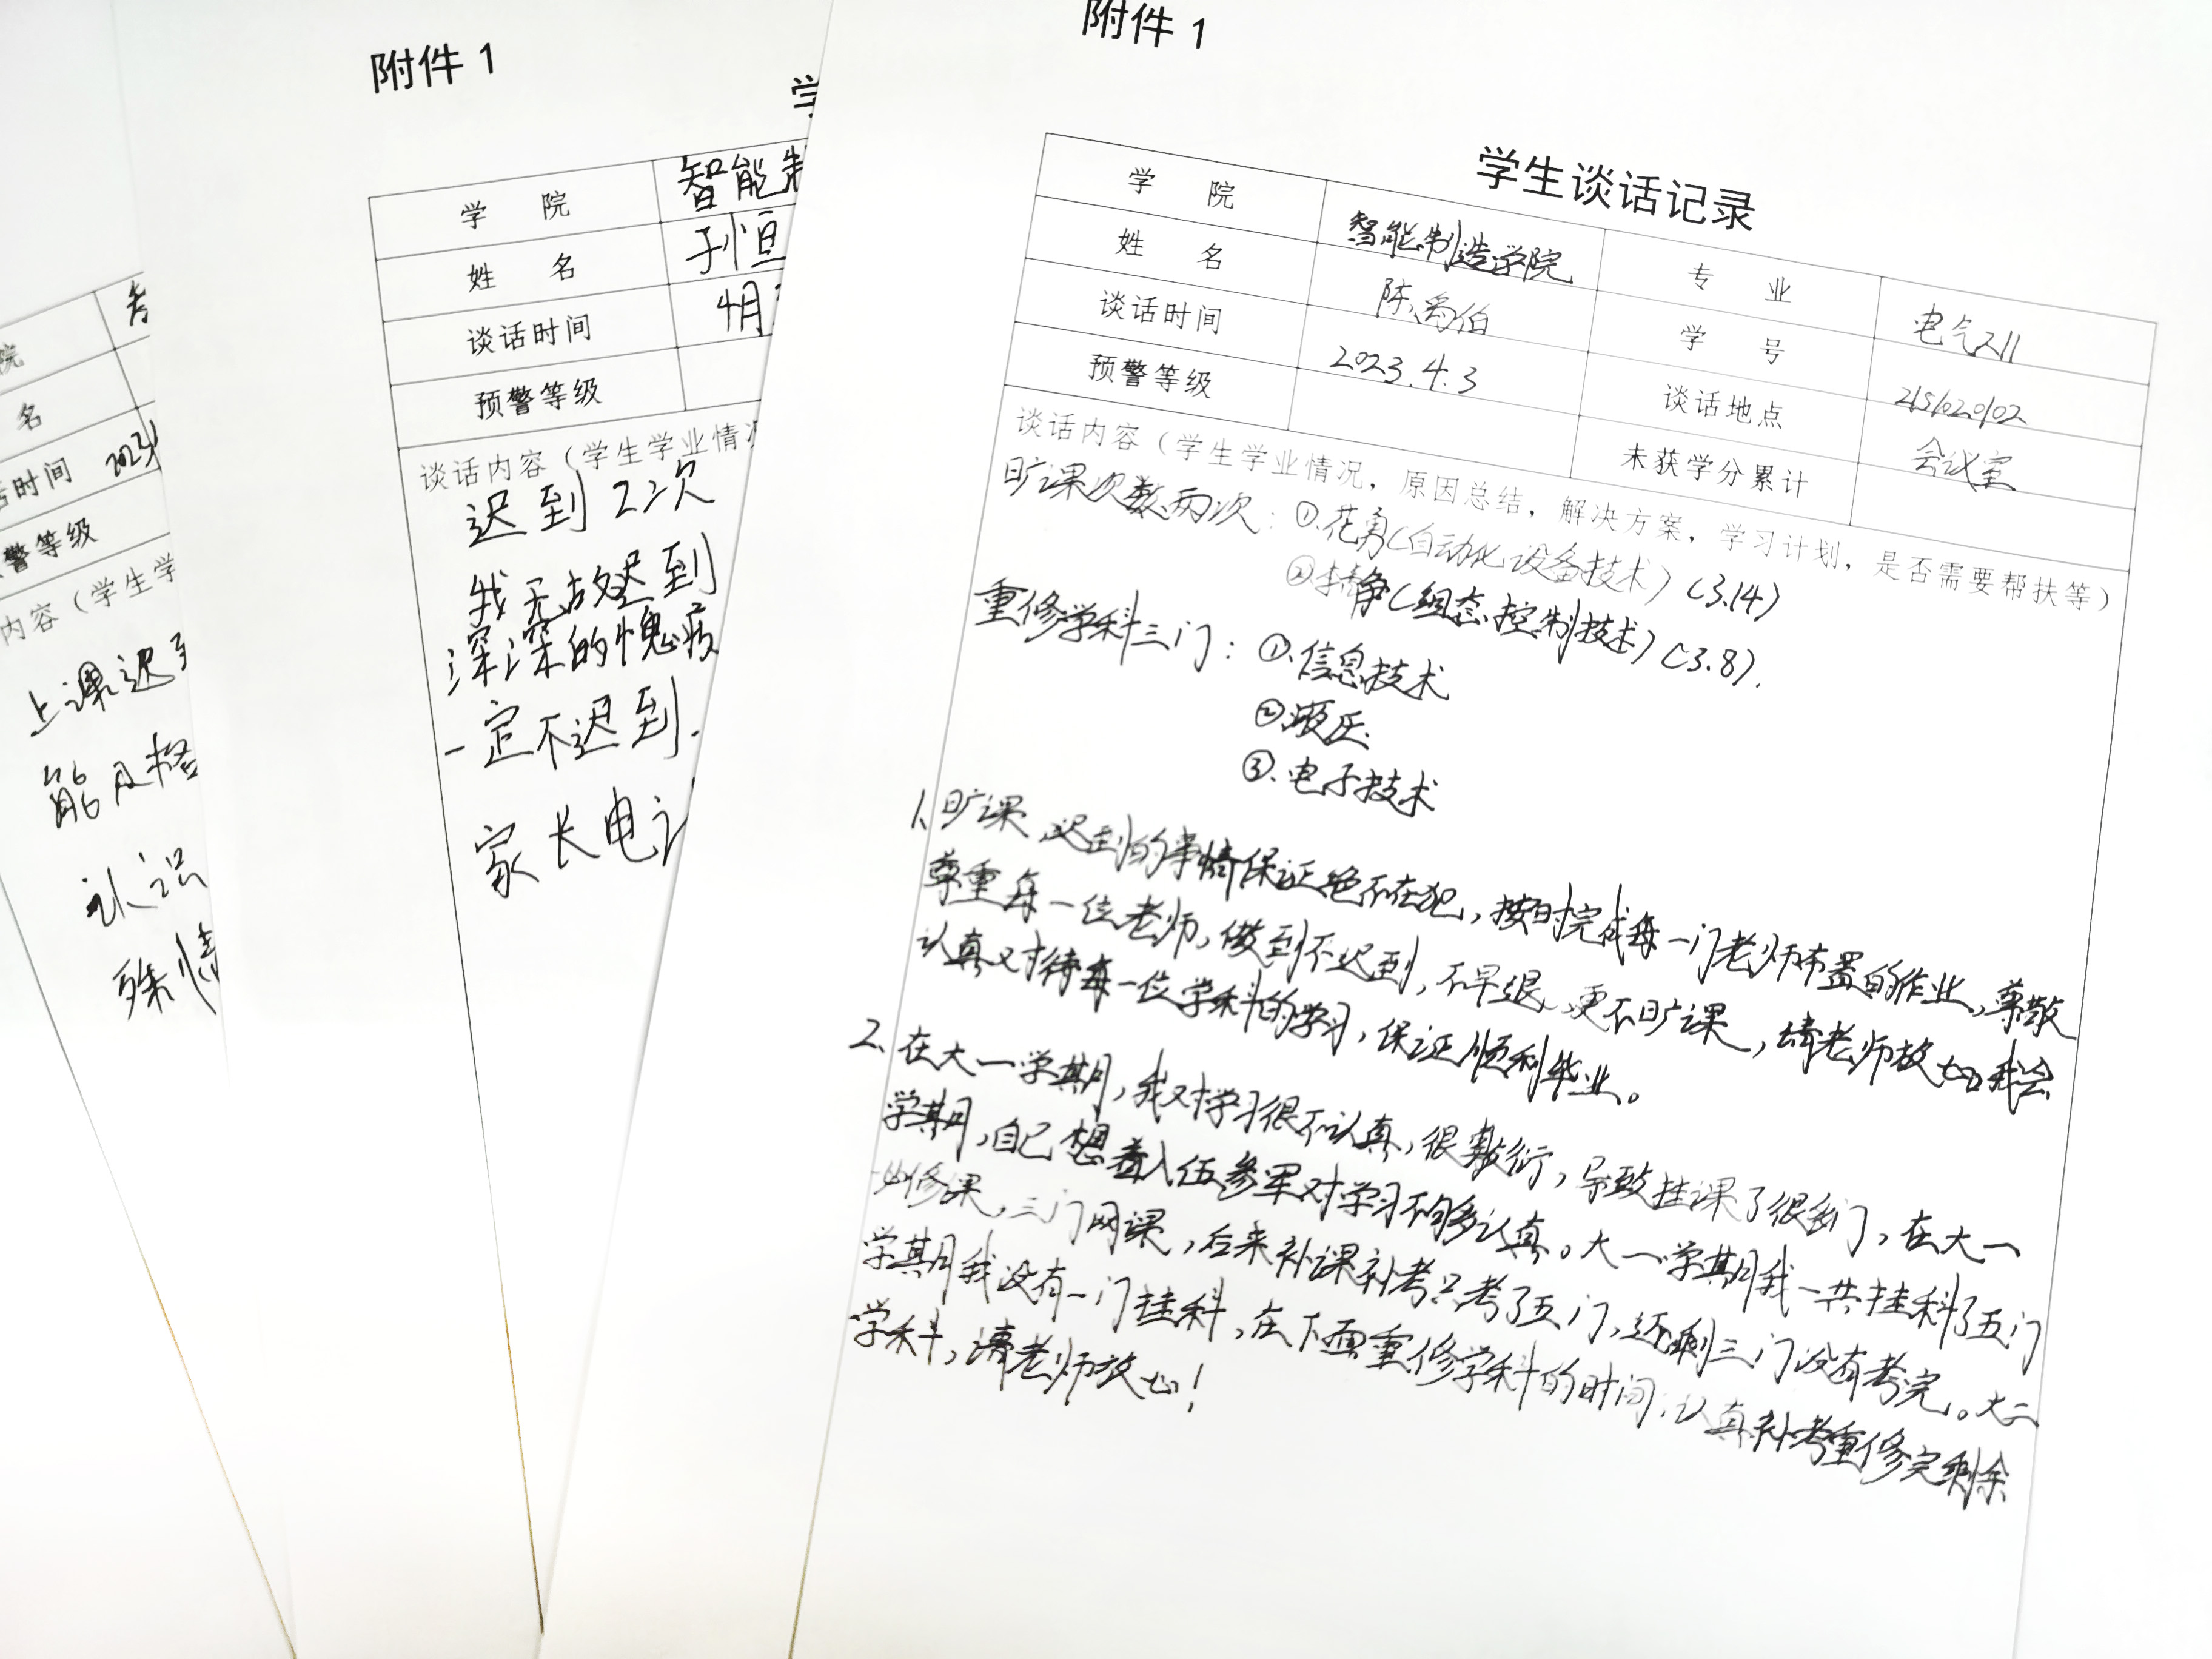 附件 1
学生谈话记录
学 院 智能制造学院 专 业 电气211
姓 名 陈禹伯 学 号 2151020102
谈话时间 2023.4.3 谈话地点 会议室
预警等级 未获学分累计
谈话内容（学生学业情况，原因总结，解决方案，学习计划，是否需要帮扶等）
旷课次数两次：①.花勇（自动化设备技术）（3.14）
②李静（组态控制技术）（3.8）.
重修学科三门：①.信息技术
②液压
③.电子技术
1.旷课、迟到的事情保证绝不在犯，按时完成每一门老师布置的作业，尊敬
尊重每一位老师，做到不迟到，不早退、更不旷课，请老师放心我会
认真对待每一位学科的学习，保证顺利毕业。
2.在大一学期，我对学习很不认真，很敷衍，导致挂课了很多门，在大一
学期，自己想着入伍参军对学习不够多认真。大一学期我一共挂科了五门
必修课，三门网课，后来补课补考只考了五门，还剩三门没有考完。大二
学期我没有一门挂科，在下面重修学科的时间，认真补考重修完剩余
学科，请老师放心！
附件 1
学
学 院 智能制
姓 名 孙恒
谈话时间 4月
预警等级
谈话内容（学生学业情况
迟到22次
我无故迟到
深深的愧疚
一定不迟到.
家长电话
院
名
话时间 2023
警等级
内容（学生学
上课迟到
能及格
认识
殊情